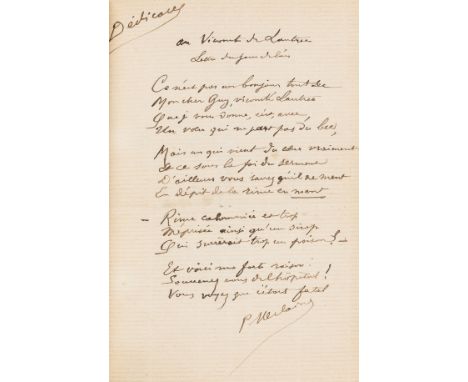 Dédicaces
au Vicomte de Lautrec
Ce n'est pas un bonjour tout sec
Mon cher Guy, vicomte Lautrec
Que je vous donne, civis, avec
Un vœu qui ne part pas du bec,
Mais un qui vient du cœur vraiment
Et ce sous la foi du serment
D'ailleurs vous savez qu'il ne ment
En dépit de la rime en ment
— Rime calomniée et trop
Méprisée ainsi qu'un sirop
Qui sucrerait trop un poison ! —
Et voici ma forte raison :
Souvenez-vous de l'hôpital !
Vous voyez que c'était fatal
P. Verlaine